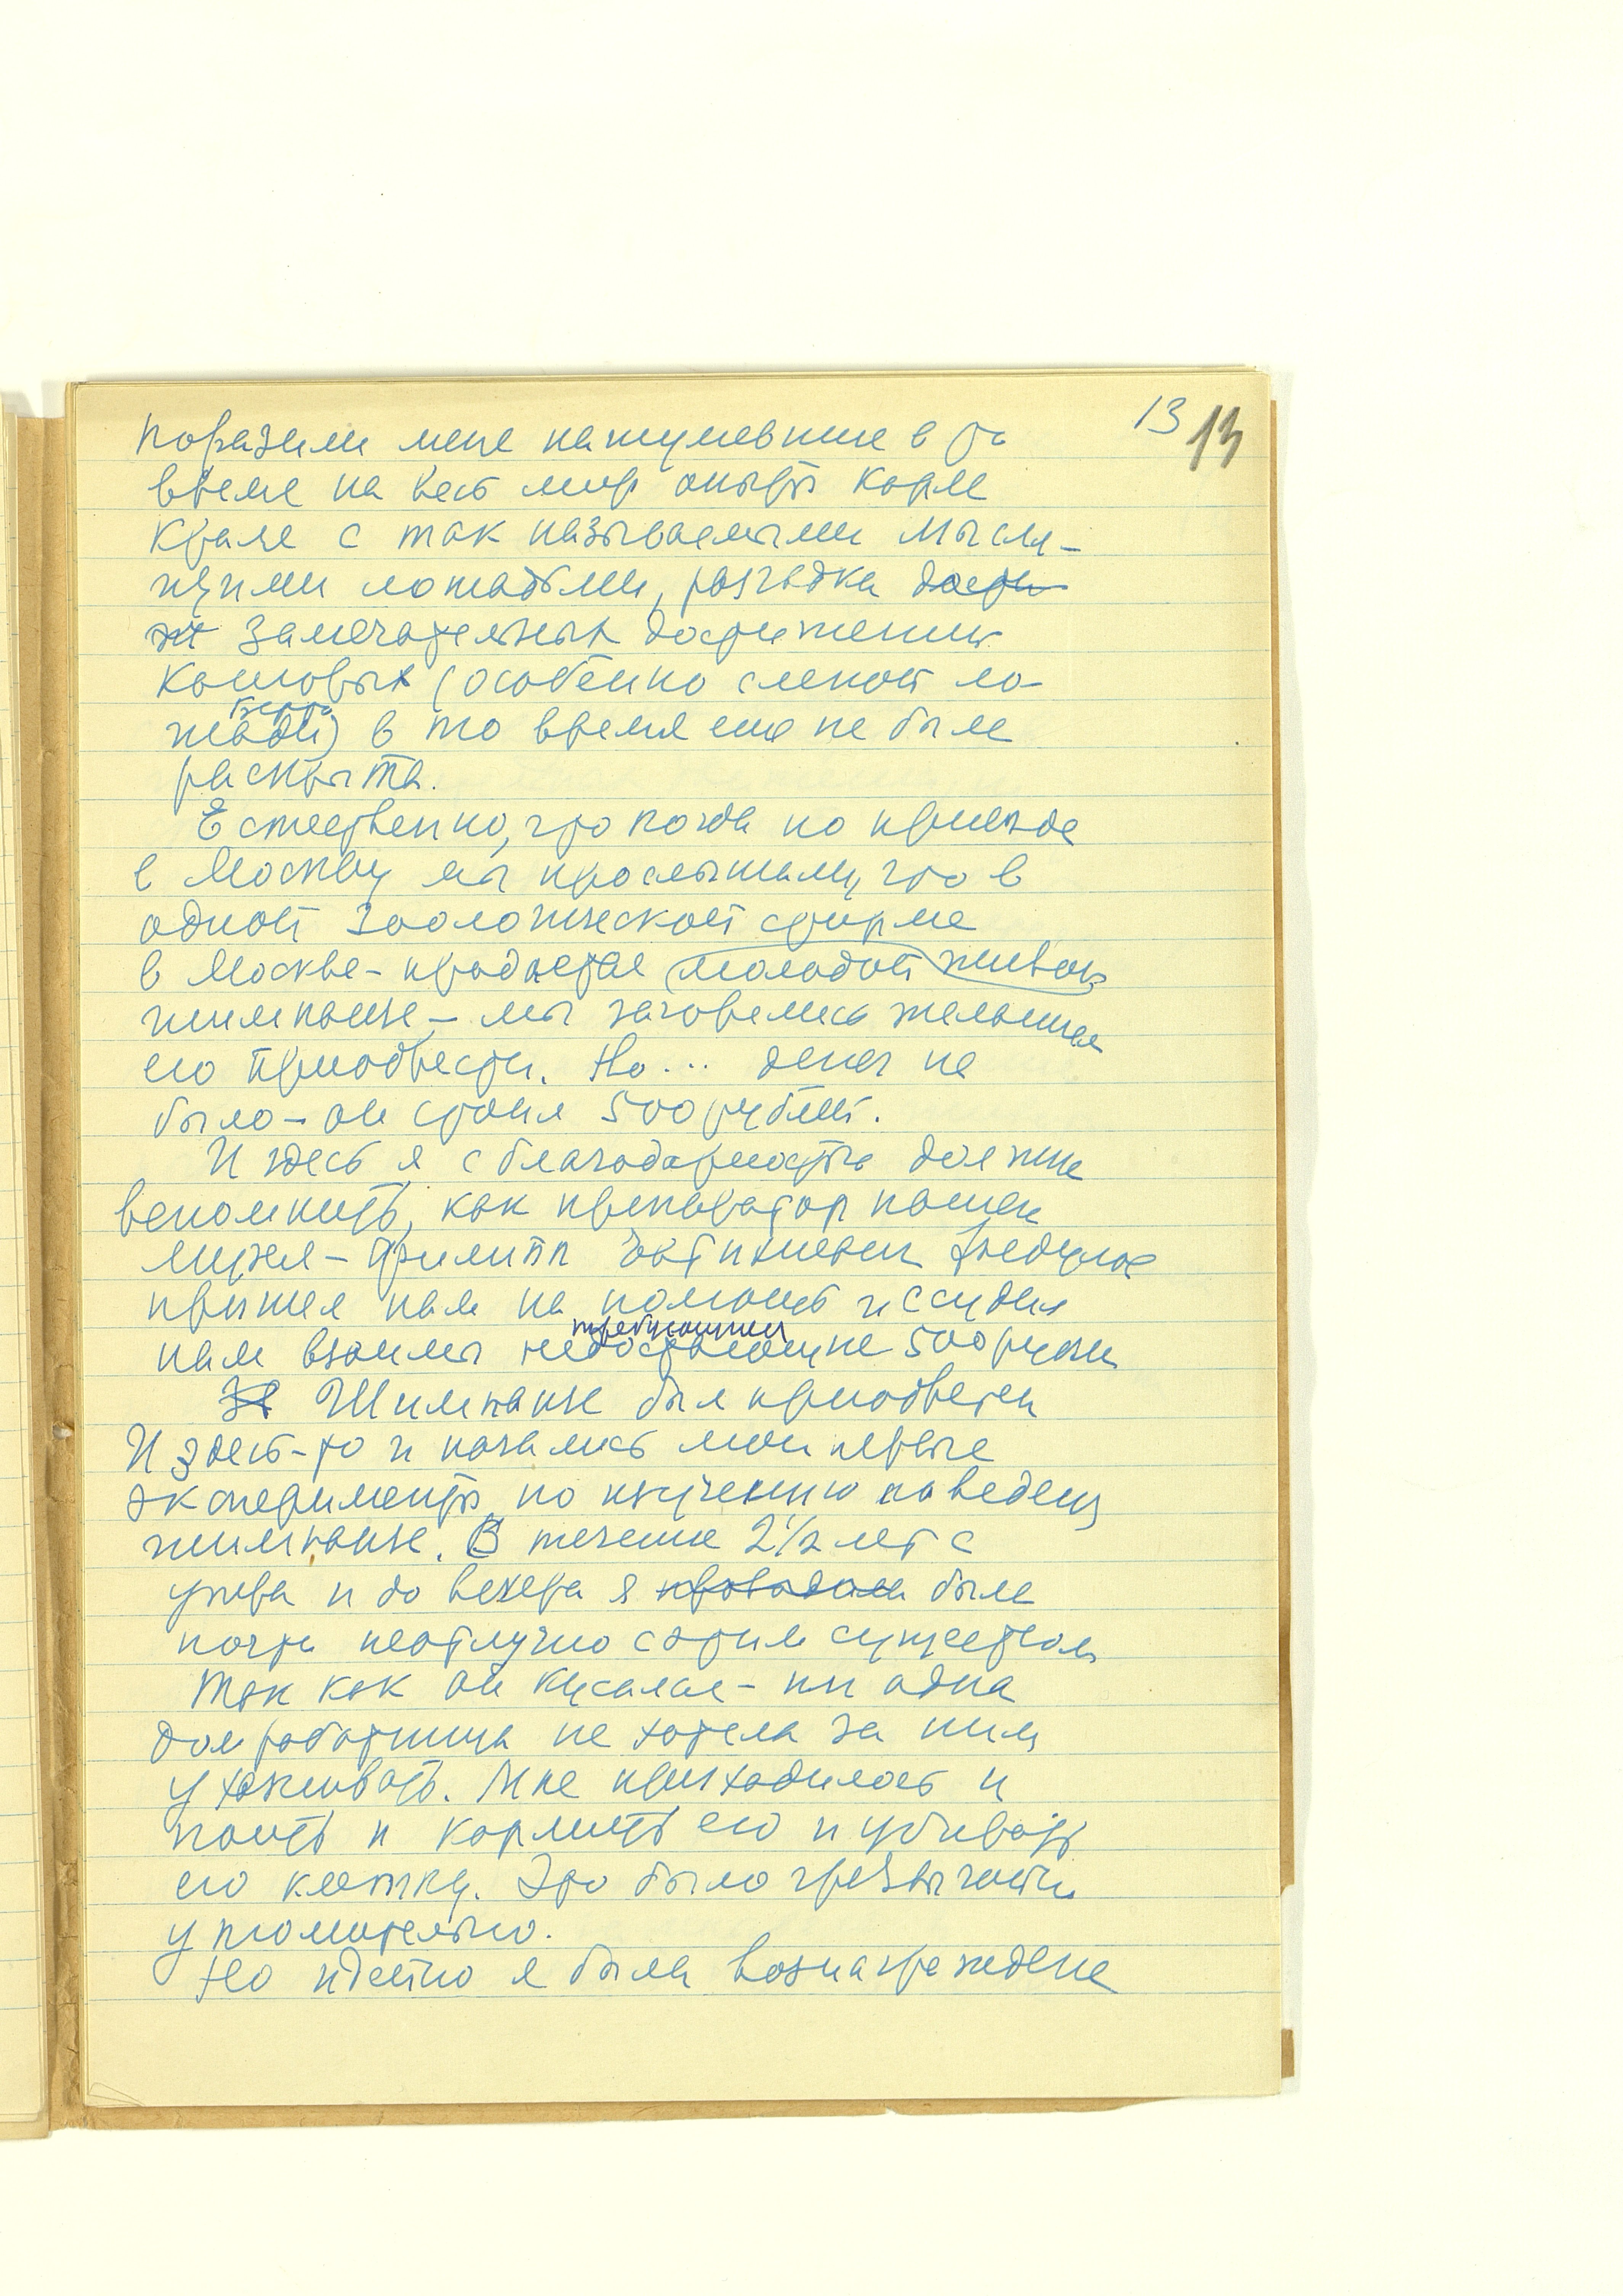 13 13
поразили меня нашумевшие в то
время на весь мир опыты Карла
Кралля с так называемыми мысля-
щими лошадьми, разгадка дости
же замечательных достижений
которых (особенно слепой ло-
Берто
шади) в то время еще не была
раскрыта.
Естественно, что когда по приезде
в Москву мы прослышали, что в
одной зоологической фирме
в Москве - продается молодой живой
шимпанзе - мы загорелись желанием
его приобрести. Но... денег не
было - он стоил 500 рублей.
И здесь я с благодарностью должна
вспомнить, как препаратор нашего
Музея - Филипп Евтихиевич Федулов
пришел нам на помощь и ссудил
требующиеся
нам взаймы недостающие 500 рублей
За Шимпанзе был приобретен
И здесь-то и начались мои первые
эксперименты по изучению поведения
шимпанзе. В течение 2½ лет с
утра и до вечера я проводила была
почти неотлучно с этим существом
Так как он кусался - ни одна
домработница не хотела за ним
ухаживать. Мне приходилось и
поить и кормить его и убирать
его клетку. Это было чрезвычайно
утомительно.
Но идейно я была вознаграждена